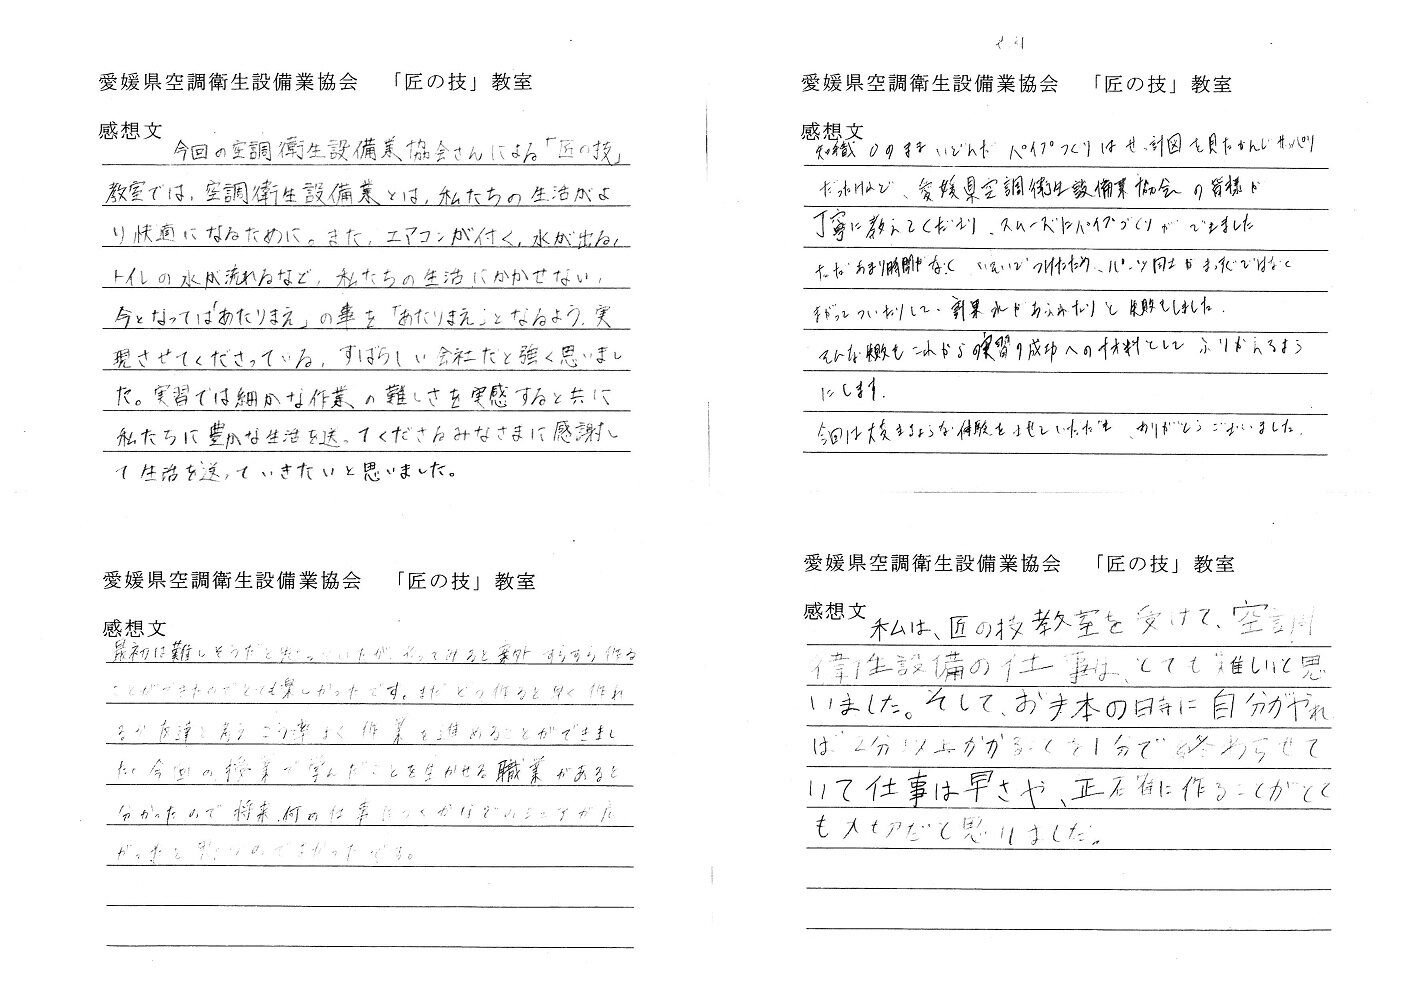 愛媛県空調衛生設備業協会 「匠の技」教室
感想文
今回の空調衛生設備業協会さんによる「匠の技」
教室では、空調衛生設備業とは、私たちの生活がよ
り快適になるために。また、エアコンが付く、水が出る、
トイレの水が流れるなど、私たちの生活にかかせない、
今となっては「あたりまえ」の事を「あたりまえ」となるよう、実
現させてくださっている、すばらしい会社だと強く思いまし
た。実習では細かな作業の難しさを実感すると共に
私たちに豊かな生活を送ってくださるみなさまに感謝し
て生活を送っていきたいと思いました。
愛媛県空調衛生設備業協会 「匠の技」教室
感想文
知識0のままいどんだパイプづくりはせっ計図を見たかんじサッパリ
だったけれど、愛媛県空調衛生設備業協会の皆様が
丁寧に教えてくださり、スムーズにパイプづくりができました
ただあまり時間がなく いそいでつけたため、パーツ同士がまっすぐではなく
まがってついたりして、結果水があふれたりと失敗もしました。
そんな失敗もこれからの実習の成功への材料としてふりかえるよう
にします。
今回は 体験をさせていただき、ありがとうございました。
愛媛県空調衛生設備業協会 「匠の技」教室
感想文
最初は難しそうだと思っていたが、やってみると案外すらすら作る
ことができたのでとても楽しかったです。またどう作ると早く作れ
るか友達と考え 効率よく作業を進めることができまし
た。今回の授業で学んだことを生かせる職業があると
分かったので将来、何の仕事につくかなどの
愛媛県空調衛生設備業協会 「匠の技」教室
感想文
私は、匠の技教室を受けて、空調
衛生設備の仕事は、とても難しいと思
いました。そして、お手本の時に自分がやれ
ば2分以上かかることを1分で終わらせて
いて仕事は早さや、正確に作ることがとて
も大切だと思いました。